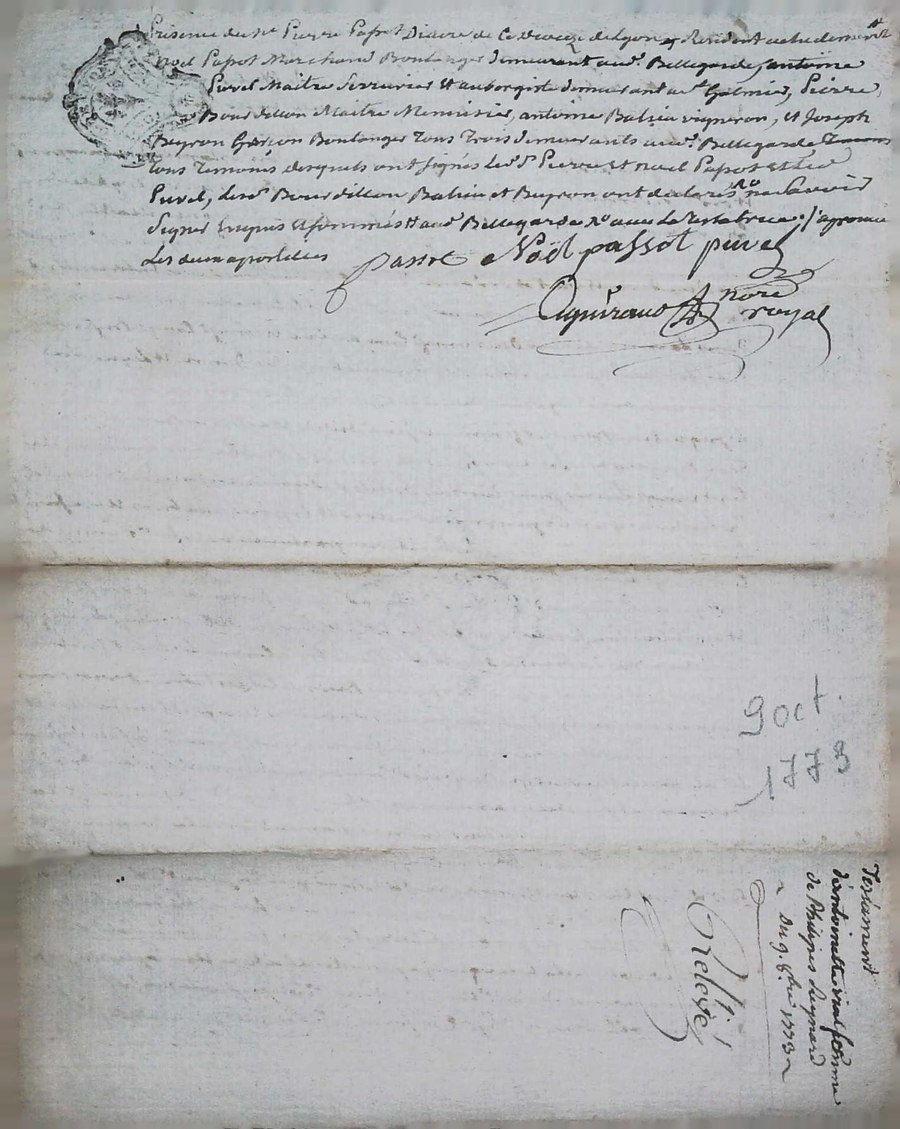 présence du Sr Pierre Passot Diacre de Ce diocèze de Lyon y Résident
noel Passot Marchand Boulanger demeurant aud. Bellegarde, antoine
Puvel Maitre Serrurier et aubergiste demeurant a St Galmier, Pierre
Bourdillon Maitre Menuisier, antoine Bahin vigneron, et Joseph
Beyron Garçon Boulanger tous trois demeurants aud. Bellegarde
tous Temoins desquels ont signés led. Sr Pierre et noel Passot et led.
Puvel, lesd. Bourdillon Bahin et Beyron ont déclarés ne sçavoir
signer Enquis et sommés aud. Bellegarde j'approuve
Les deux apostilles
passot Noël passot puvel
nore
royal
9 oct.
1773
Testament
d'antoinette vial femme
de
Du 9. 8bre 1773
Relevé